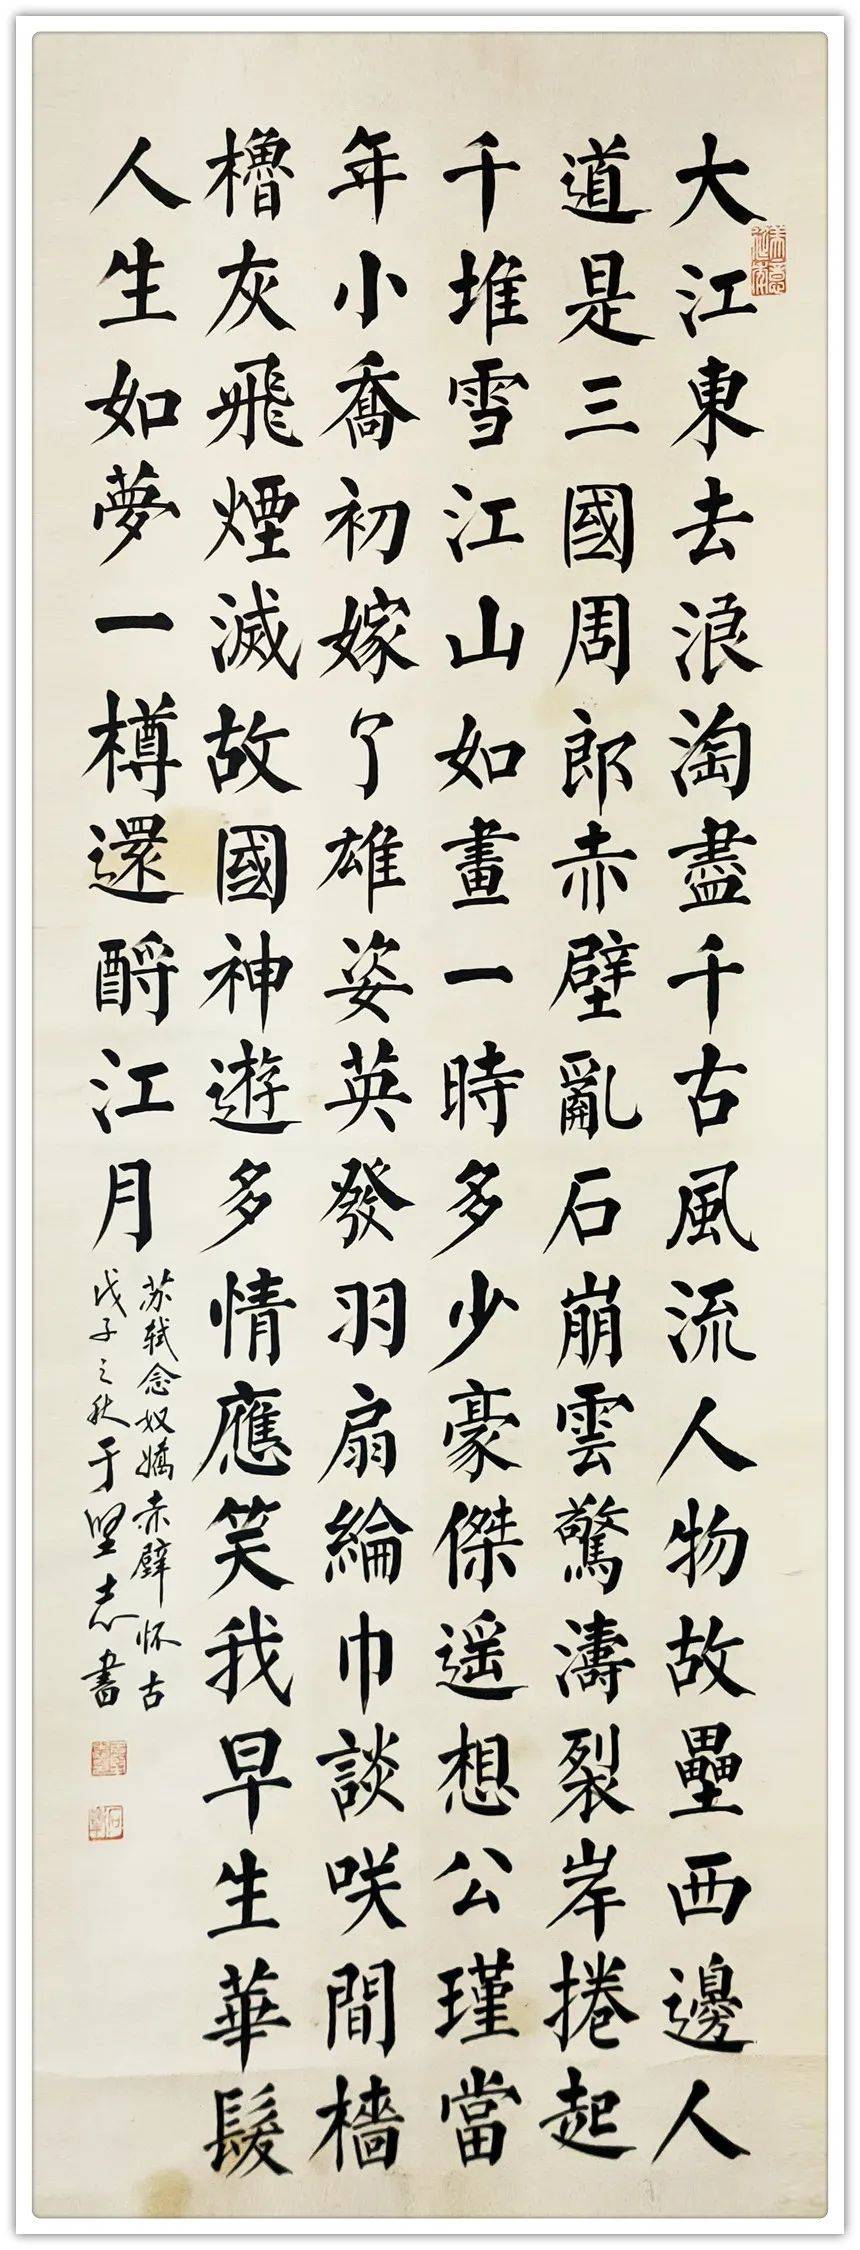 大江東去浪淘盡千古風流人物故壘西邊人
道是三國周郎赤壁亂石崩雲驚濤裂岸捲起
千堆雪江山如畫一時多少豪傑遥想公瑾當
年小喬初嫁了雄姿英發羽扇綸巾談咲間檣
櫓灰飛煙滅故國神遊多情應笑我早生華髮
人生如夢一樽還酹江月
苏轼念奴嬌赤壁怀古
戊子之秋于坚志書